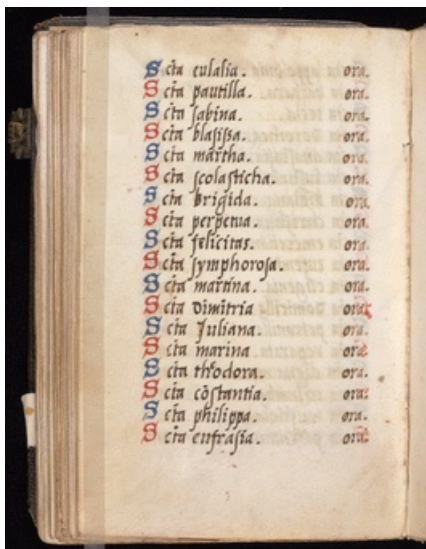 Sc̄ta eulalia. ora.
Sc̄ta pautilla. ora.
Sc̄ta sabina. ora.
Sc̄ta blasissa. ora.
Sc̄ta martha. ora.
Sc̄ta scolasticha. ora.
Sc̄ta brigida. ora.
Sc̄ta perpetua. ora.
Sc̄ta felicitas. ora.
Sc̄ta symphorosa. ora.
Sc̄ta martina. ora.
Sc̄ta dimitria ora.
Sc̄ta Juliana. ora.
Sc̄ta marina ora.
Sc̄ta theodora. ora.
Sc̄ta cōstantia. ora.
Sc̄ta philippa. ora.
Sc̄ta eufrasia. ora.